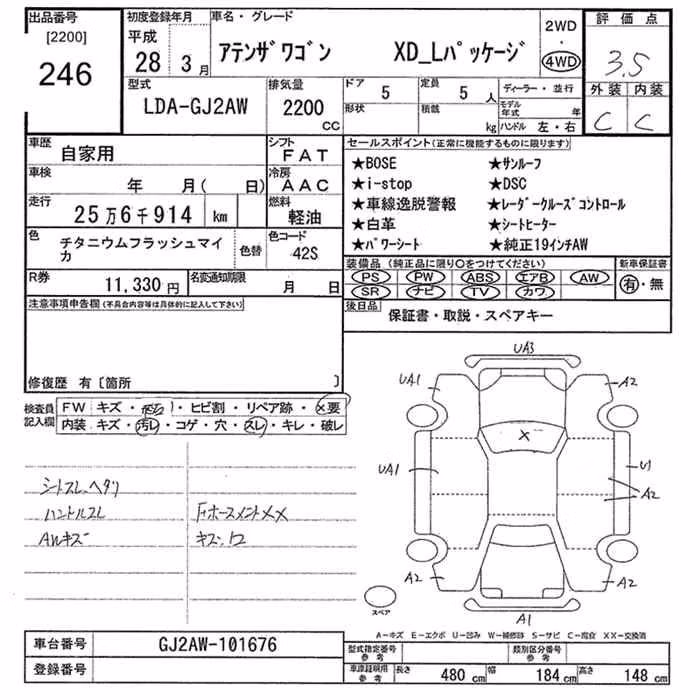 出品番号 初度登録年月 車名・グレード 2WD 評価点
[2200] 平成 ・
246 28 3月 アテンザワゴン XD_Lパッケージ 4WD 3.5
型式 排気量 ドア 5 定員 5人 ディーラー・並行 外装 内装
LDA-GJ2AW 2200 CC 形状 積載 kg モデル年式 年 C C
ハンドル 左・右
車歴 自家用 シフト FAT セールスポイント(正常に機能するものに限ります)
車検 年 月( 日) 冷房 AAC
★BOSE ★サンルーフ
★i-stop ★DSC
走行 25万6千914 km 燃料 軽油
★車線逸脱警報 ★レーダークルーズコントロール
★白革 ★シートヒーター
★パワーシート ★純正19インチAW
色 チタニウムフラッシュマイカ 色替 色コード 42S
装備品(純正品に限り○をつけてください) 新車保証書
PS PW ABS エアB AW 有・無
SR ナビ TV カワ
R券 11,330円 名変通知期限 月 日
後日品 保証書・取説・スペアキー
注意事項申告欄(不具合内容等は具体的に記入して下さい)
修復歴 有〔箇所 〕
検査員記入欄 FW キズ・ ・ヒビ割・リペア跡・×要
内装 キズ・汚レ・コゲ・穴・スレ・キレ・破レ
シートスレ、ヘタリ
ハンドルスレ
AWキズ
XX
キズ、
UA3
UA1 A2
X
UA1 U1
A2
A2 A2
スペア
A1
A-キズ E-エクボ U-凹み W-補修跡 S-サビ C-腐食 XX-交換済
車台番号 GJ2AW-101676
登録番号
型式指定番号 参考 類別区分番号 参考
車庫証明用 参考 長さ 480cm 幅 184cm 高さ 148cm